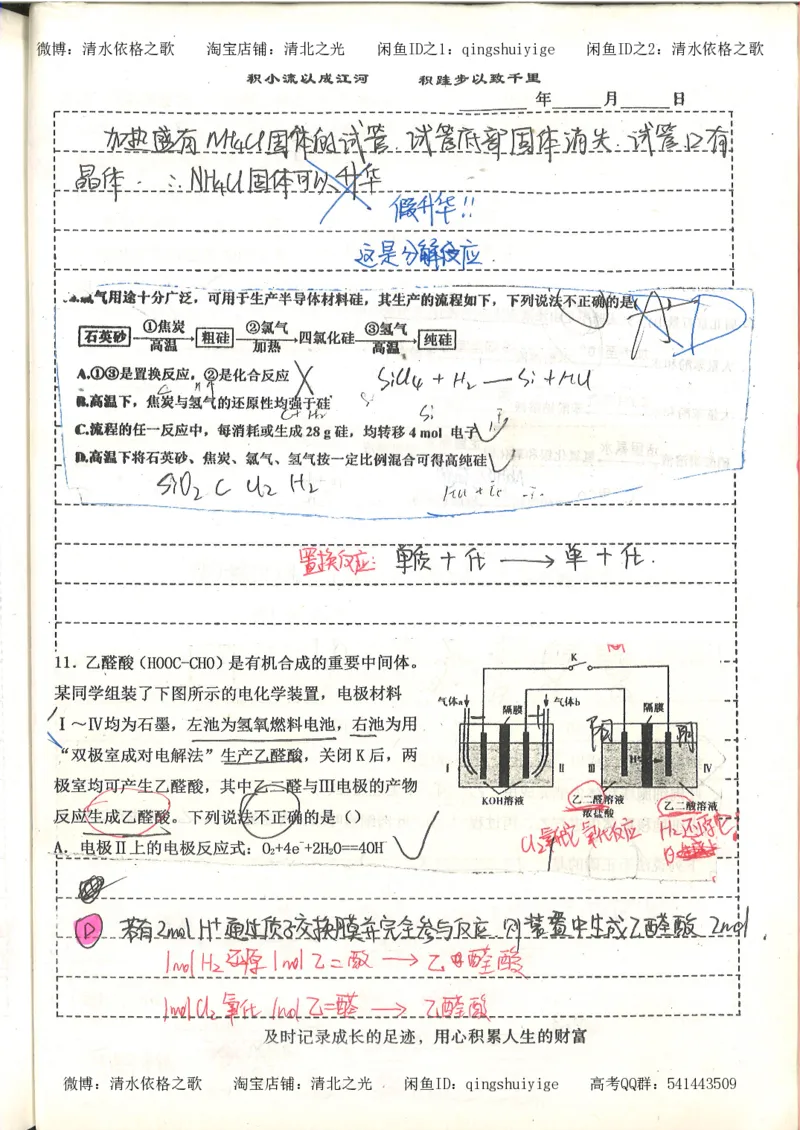 微博：清水依格之歌 淘宝店铺：清北之光 闲鱼ID之1：qingshuiyige 闲鱼ID之2：清水依格之歌
积小流以成江河 积跬步以致千里
年 月 日
加热盛有NH4Cl固体的试管．试管底部固体消失．试管口有
晶体．∴NH4Cl固体可以升华
假升华!!
这是分解反应．
氯气用途十分广泛，可用于生产半导体材料硅，其生产的流程如下，下列说法不正确的是( )
石英砂 ①焦炭 高温 粗硅 ②氯气 加热 四氯化硅 ③氢气 高温 纯硅
A.①③是置换反应，②是化合反应
SiCl4 + H2 — Si + HCl
B.高温下，焦炭与氢气的还原性均强于硅
C.流程的任一反应中，每消耗或生成28 g硅，均转移4 mol 电子
D.高温下将石英砂、焦炭、氯气、氢气按一定比例混合可得高纯硅
SiO2 C Cl2 H2
置换反应：单质＋化 → 单＋化．
11．乙醛酸（HOOC-CHO）是有机合成的重要中间体。
某同学组装了下图所示的电化学装置，电极材料
Ⅰ～Ⅳ均为石墨，左池为氢氧燃料电池，右池为用
“双极室成对电解法”生产乙醛酸，关闭K后，两
极室均可产生乙醛酸，其中乙二醛与Ⅲ电极的产物
反应生成乙醛酸。下列说法不正确的是（）
A．电极Ⅱ上的电极反应式：O2+4e-+2H2O==4OH-
K
气体a 隔膜 气体b 隔膜
阳 阴
H+
Ⅰ Ⅱ Ⅲ Ⅳ
KOH溶液 乙二醛溶液 乙二酸溶液
浓盐酸
Cl2氧化 氧化反应
H2还原它
D 若有2molH+通过质子交换膜并完全参与反应，则装置中生成乙醛酸 2mol．
1molH2还原1mol乙二酸 → 乙醛酸
1molCl2氧化1mol乙二醛 → 乙醛酸
及时记录成长的足迹，用心积累人生的财富
微博：清水依格之歌 淘宝店铺：清北之光 闲鱼ID：qingshuiyige 高考QQ群：541443509